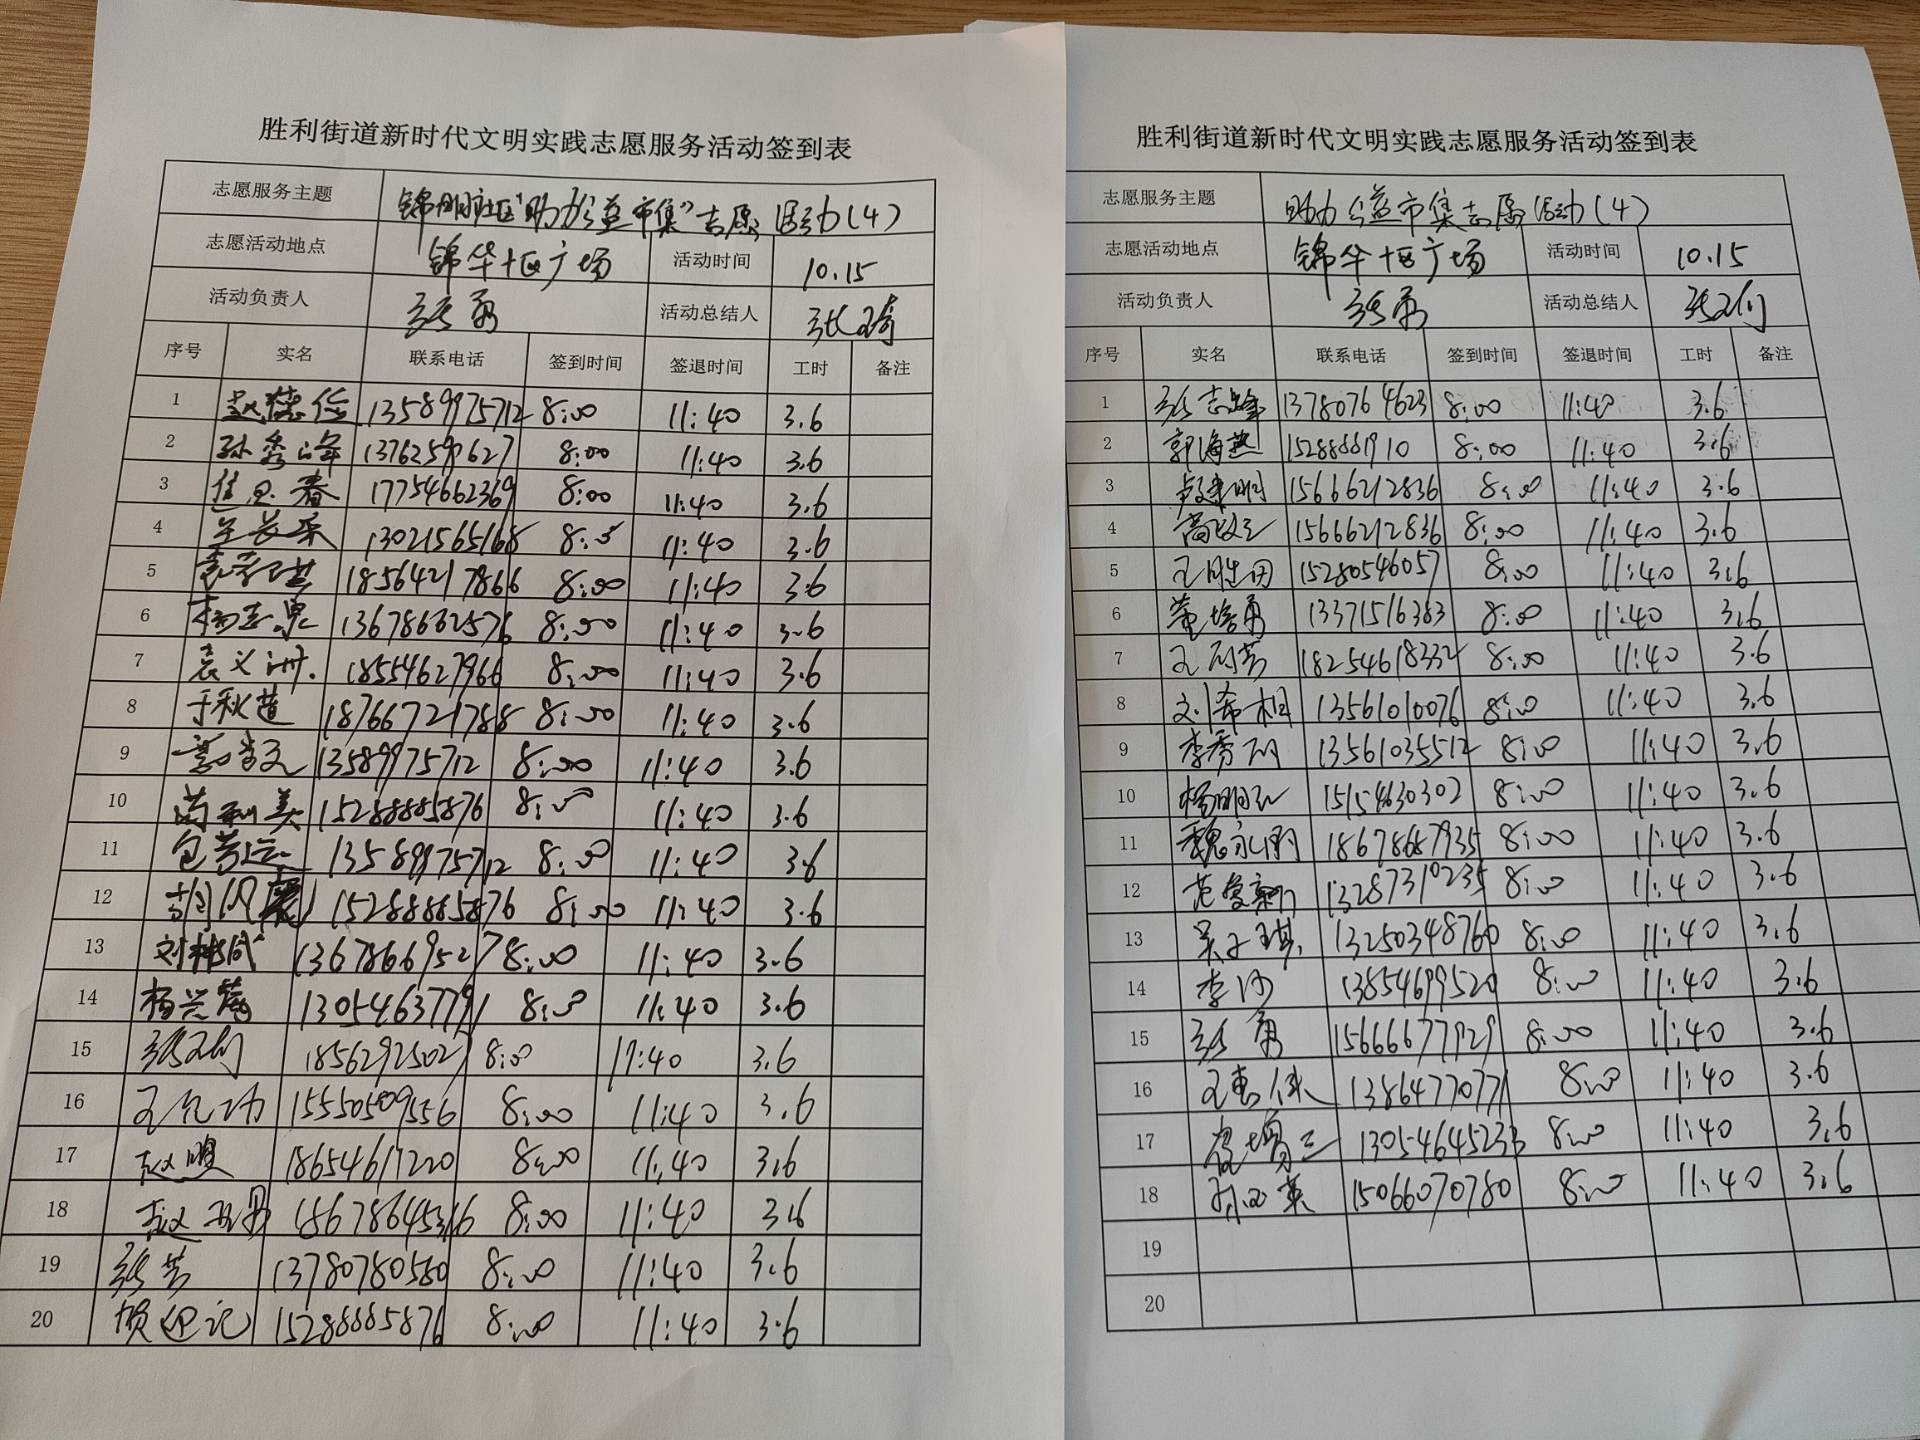 胜利街道新时代文明实践志愿服务活动签到表
志愿服务主题 锦明社区"助力公益市集"志愿活动(4)
志愿活动地点 锦华十区广场 活动时间 10.15
活动负责人 张勇 活动总结人
序号 实名 联系电话 签到时间 签退时间 工时 备注
1 赵德俭 13589975712 8:00 11:40 3.6
2 孙秀峰 8:00 11:40 3.6
3 17754662369 8:00 11:40 3.6
4 13021565168 8:00 11:40 3.6
5 18564217866 8:00 11:40 3.6
6 杨志泉 13678662576 8:00 11:40 3.6
7 袁义洲 18554627966 8:00 11:40 3.6
8 于秋莲 18766721788 8:00 11:40 3.6
9 13589975712 8:00 11:40 3.6
10 15288885876 8:00 11:40 3.6
11 13589975712 8:00 11:40 3.6
12 15288885876 8:00 11:40 3.6
13 13678669527 8:00 11:40 3.6
14 杨兴莲 13054637791 8:00 11:40 3.6
15 18562925027 8:00 11:40 3.6
16 15550509556 8:00 11:40 3.6
17 18654617220 8:00 11:40 3.6
18 8:00 11:40 3.6
19 张芳 13780780580 8:00 11:40 3.6
20 15288885876 8:00 11:40 3.6
胜利街道新时代文明实践志愿服务活动签到表
志愿服务主题 助力公益市集志愿活动(4)
志愿活动地点 锦华十区广场 活动时间 10.15
活动负责人 张勇 活动总结人
序号 实名 联系电话 签到时间 签退时间 工时 备注
1 张志峰 13780764623 8:00 11:40 3.6
2 郭海燕 15288881910 8:00 11:40 3.6
3 15666212836 8:00 11:40 3.6
4 15666212836 8:00 11:40 3.6
5 王胜田 15280546057 8:00 11:40 3.6
6 董培勇 13371516383 8:00 11:40 3.6
7 18254618332 8:00 11:40 3.6
8 刘希相 13561010076 8:00 11:40 3.6
9 13561035512 8:00 11:40 3.6
10 15154630302 8:00 11:40 3.6
11 18678687935 8:00 11:40 3.6
12 13287310235 8:00 11:40 3.6
13 13250348760 8:00 11:40 3.6
14 李沙 13854699520 8:00 11:40 3.6
15 张勇 15666677929 8:00 11:40 3.6
16 13864770771 8:00 11:40 3.6
17 13054645233 8:00 11:40 3.6
18 15066070780 8:00 11:40 3.6
19
20